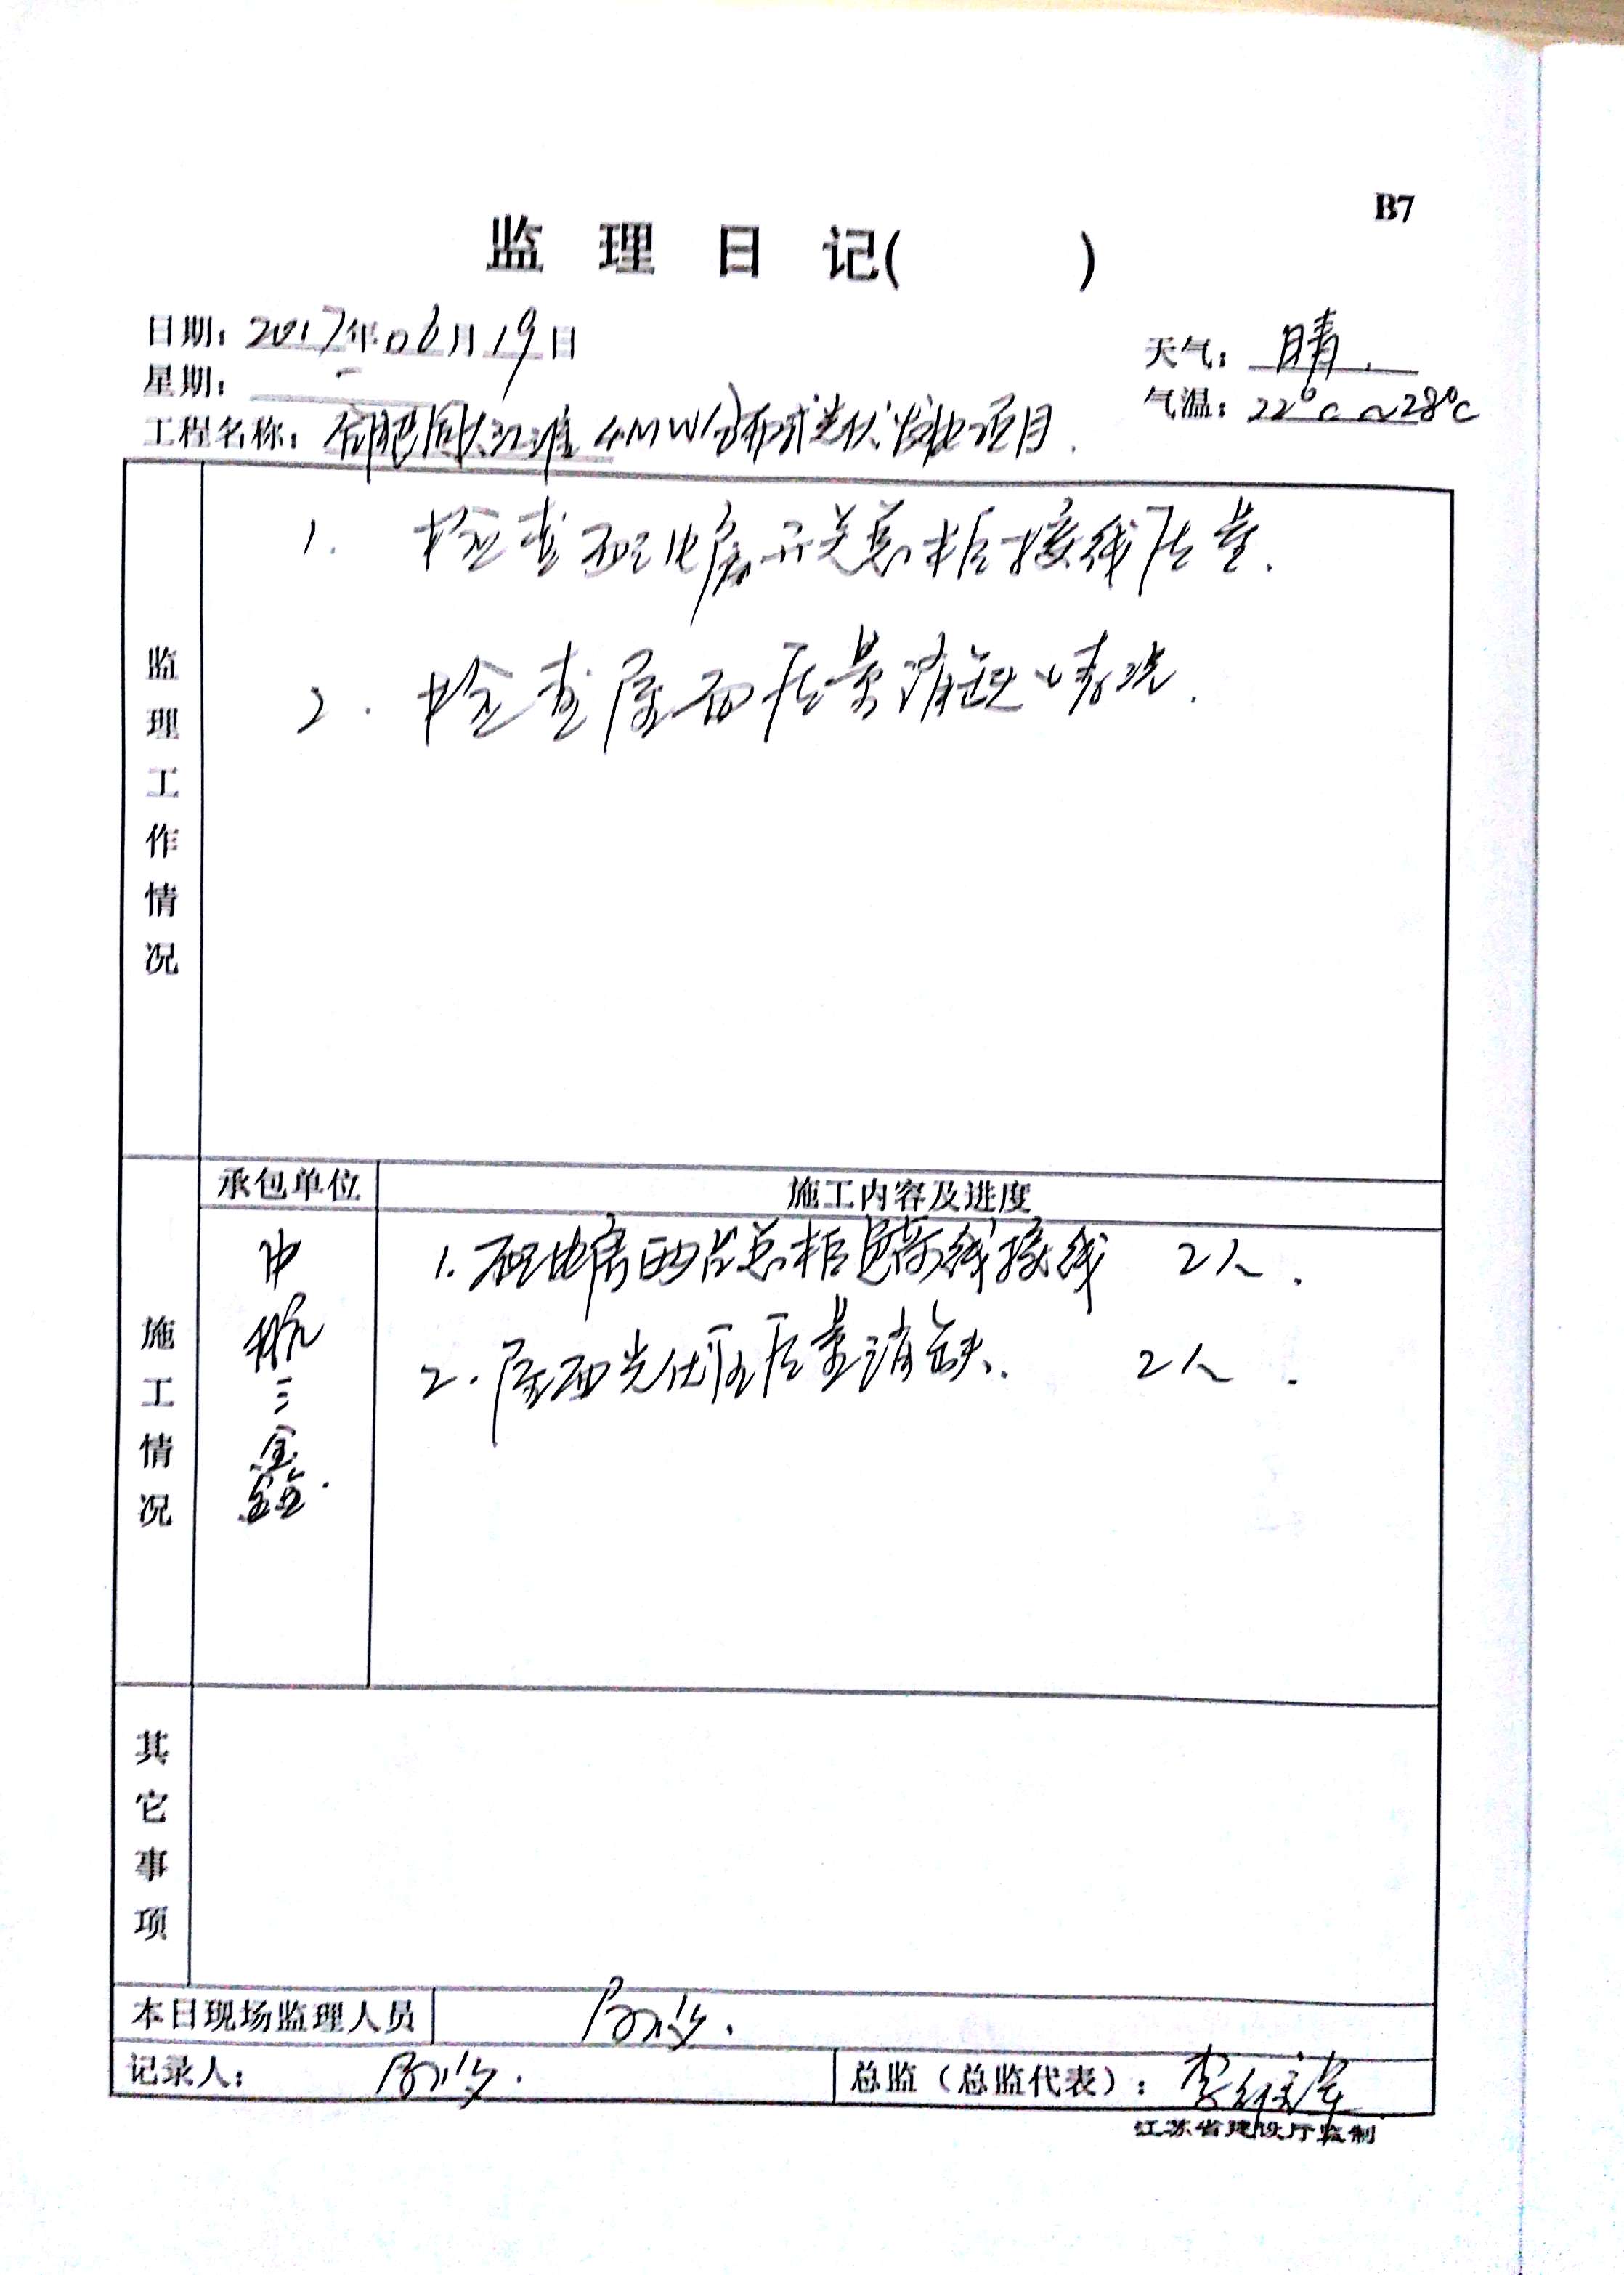 B7
监理日记( )
日期：2017年06月19日
天气：晴.
星期：一
气温：22°C~28°C
工程名称：合肥同大江淮4MW分布式光伏发电项目.
监理工作情况
1. 检查配电房开关总柜接线质量.
2. 检查屋面质量消缺情况.
施工情况
承包单位
施工内容及进度
中航三鑫.
1. 配电房 总柜 线接线 2人.
2. 屋面光伏 质量消缺. 2人.
其它事项
本日现场监理人员
记录人：
总监（总监代表）：李
江苏省建设厅监制